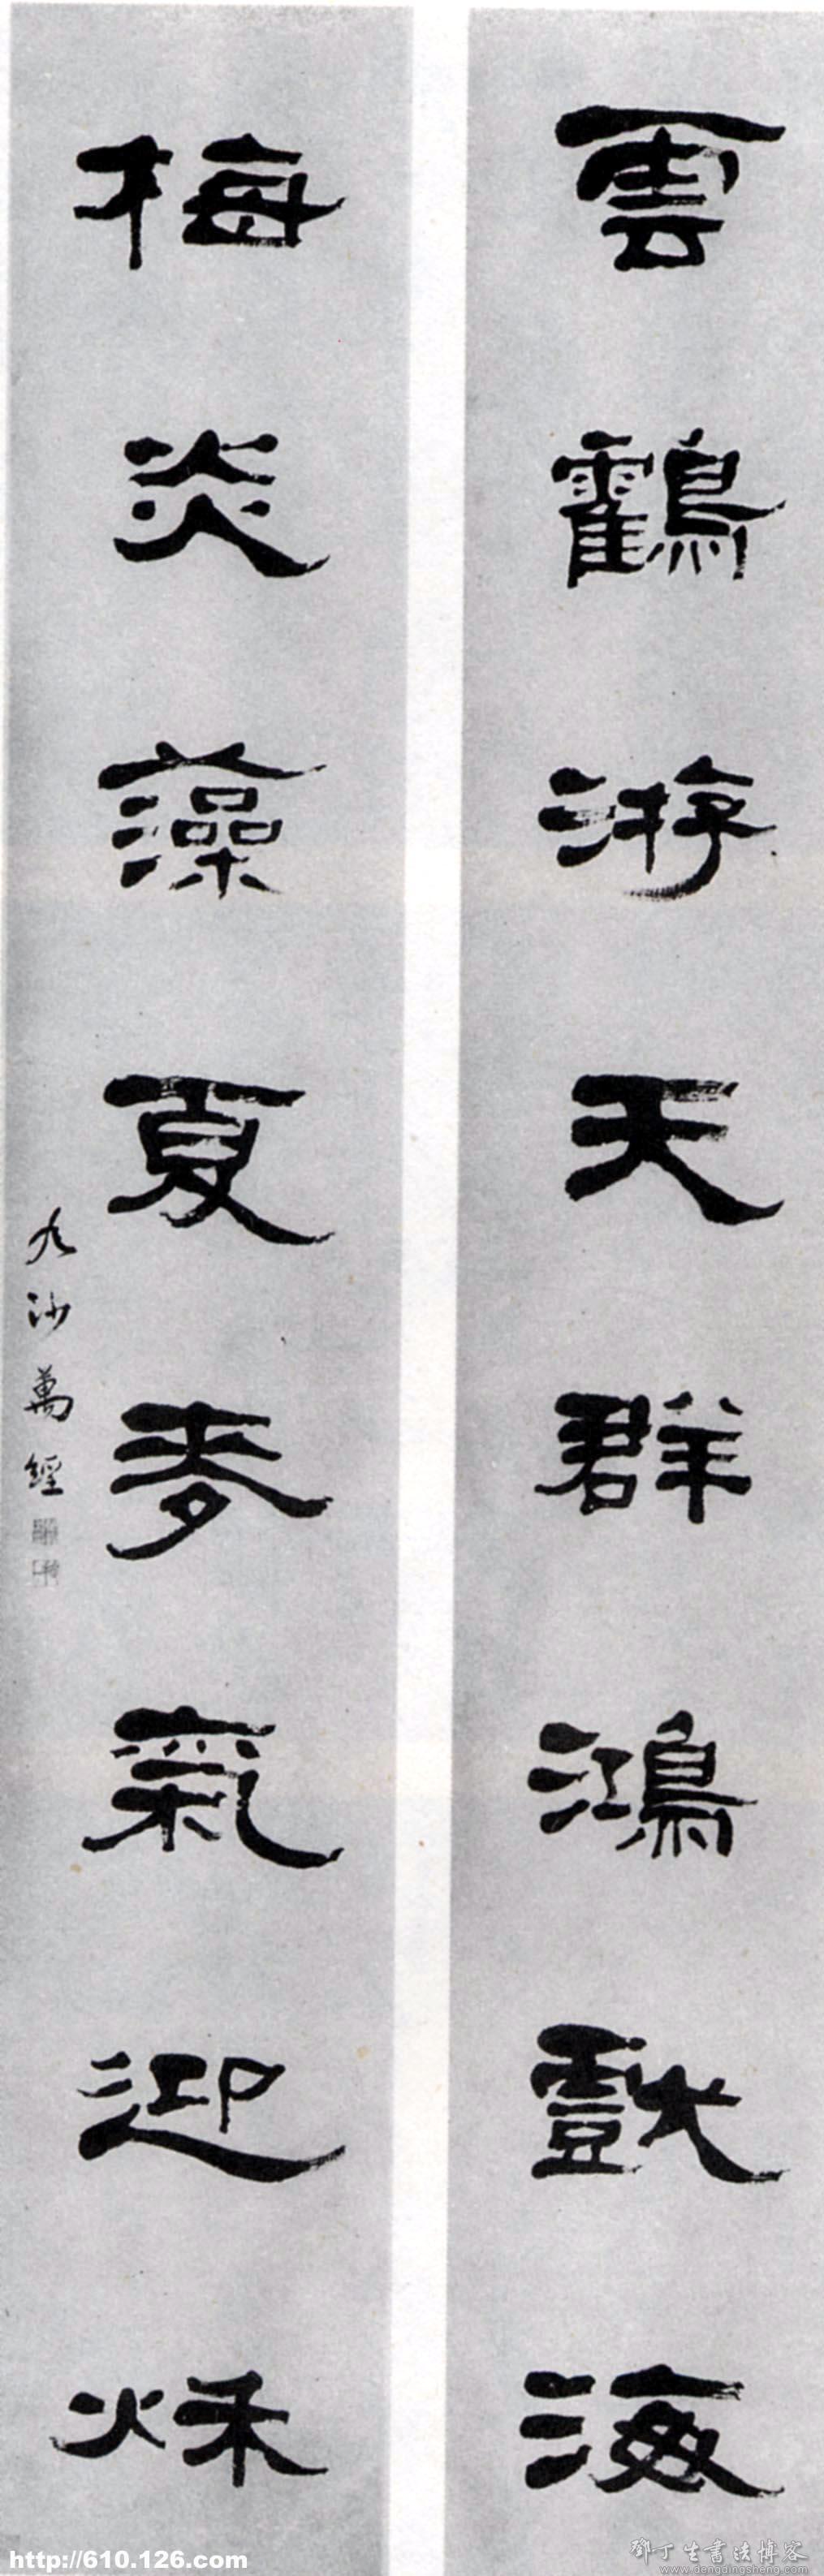 雲鸖游天群鴻戲海
梅炎藻夏麦氣迎秌
九沙萬經
http://610.126.com
鄧丁生書法博客
www.dengdingsheng.com